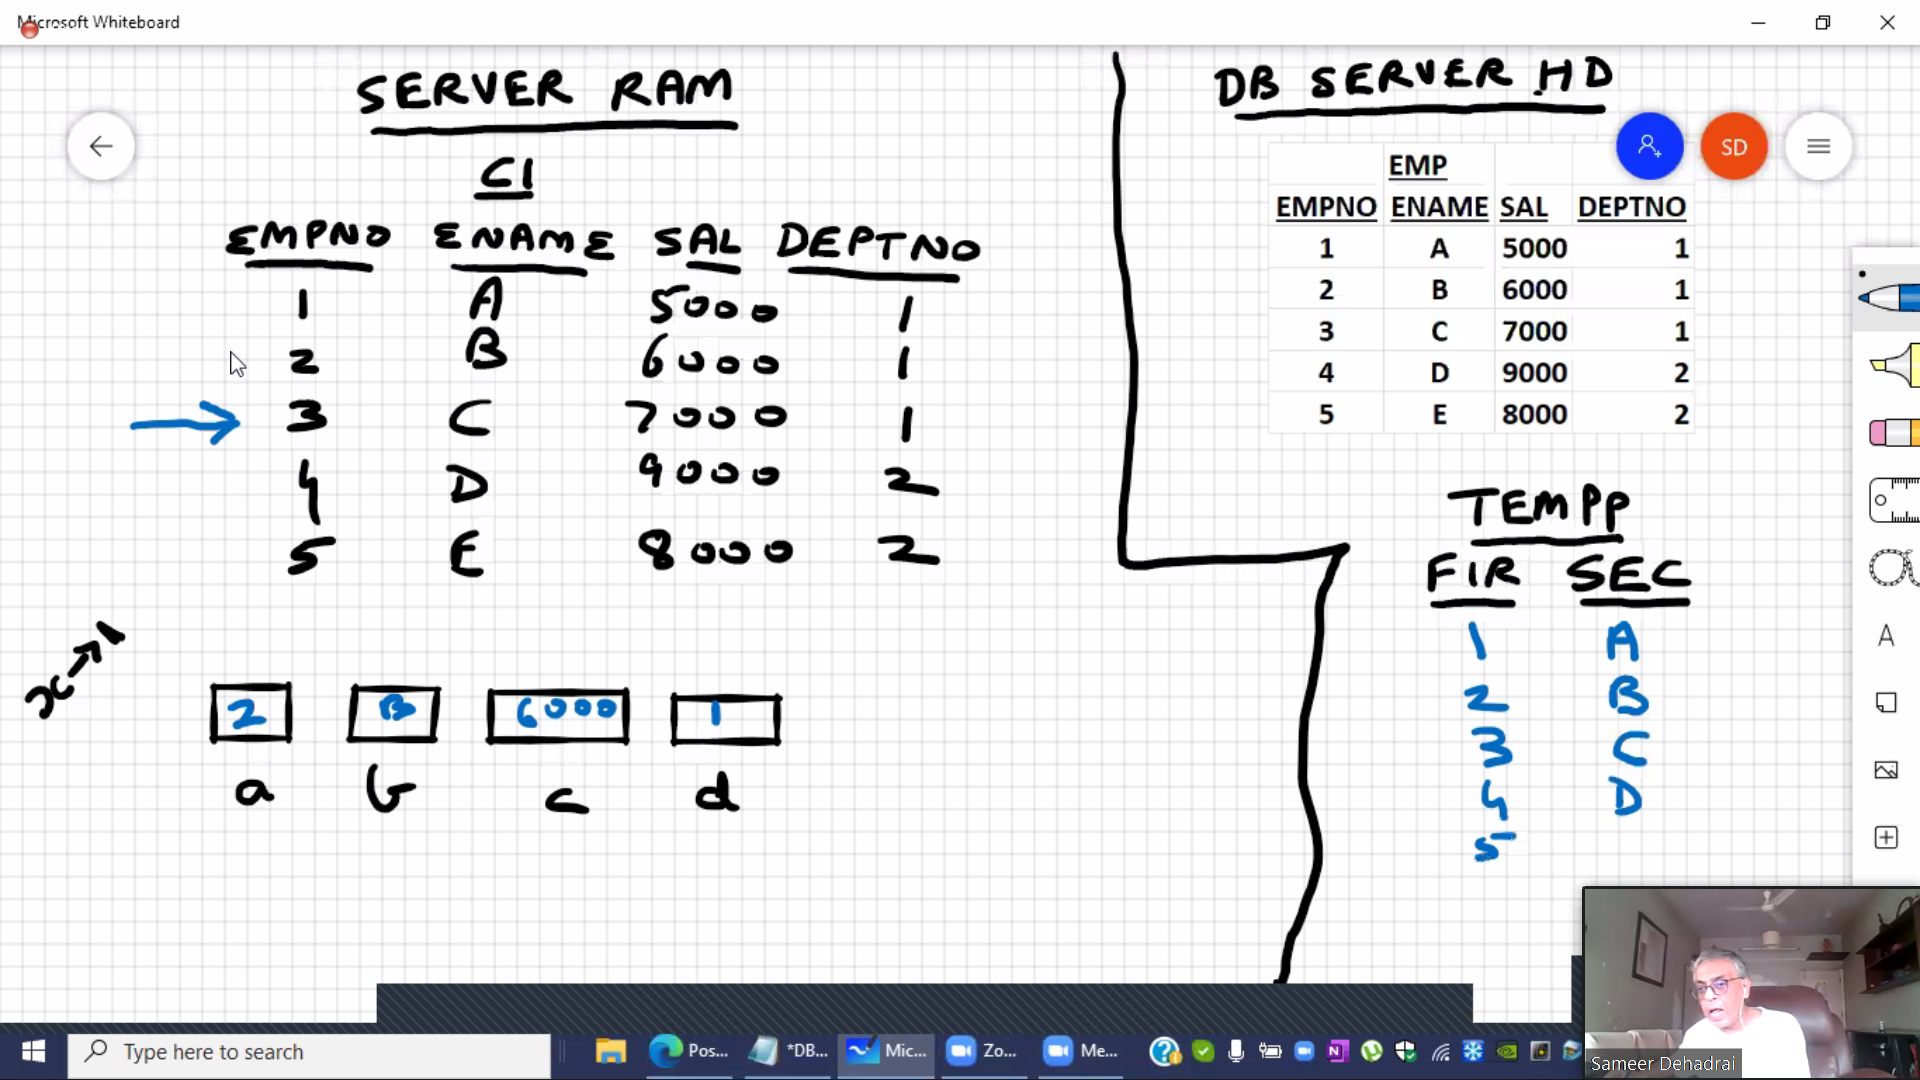 Microsoft Whiteboard
SERVER RAM
C1
EMPNO ENAME SAL DEPTNO
1 A 5000 1
2 B 6000 1
3 C 7000 1
4 D 9000 2
5 E 8000 2
x → 1
2 B 6000 1
a b c d
DB SERVER HD
SD
EMP
EMPNO ENAME SAL DEPTNO
1 A 5000 1
2 B 6000 1
3 C 7000 1
4 D 9000 2
5 E 8000 2
TEMPP
FIR SEC
1 A
2 B
3 C
4 D
5
A
Sameer Dehadrai
Type here to search
Pos...
*DB...
Mic...
Zo...
Me...